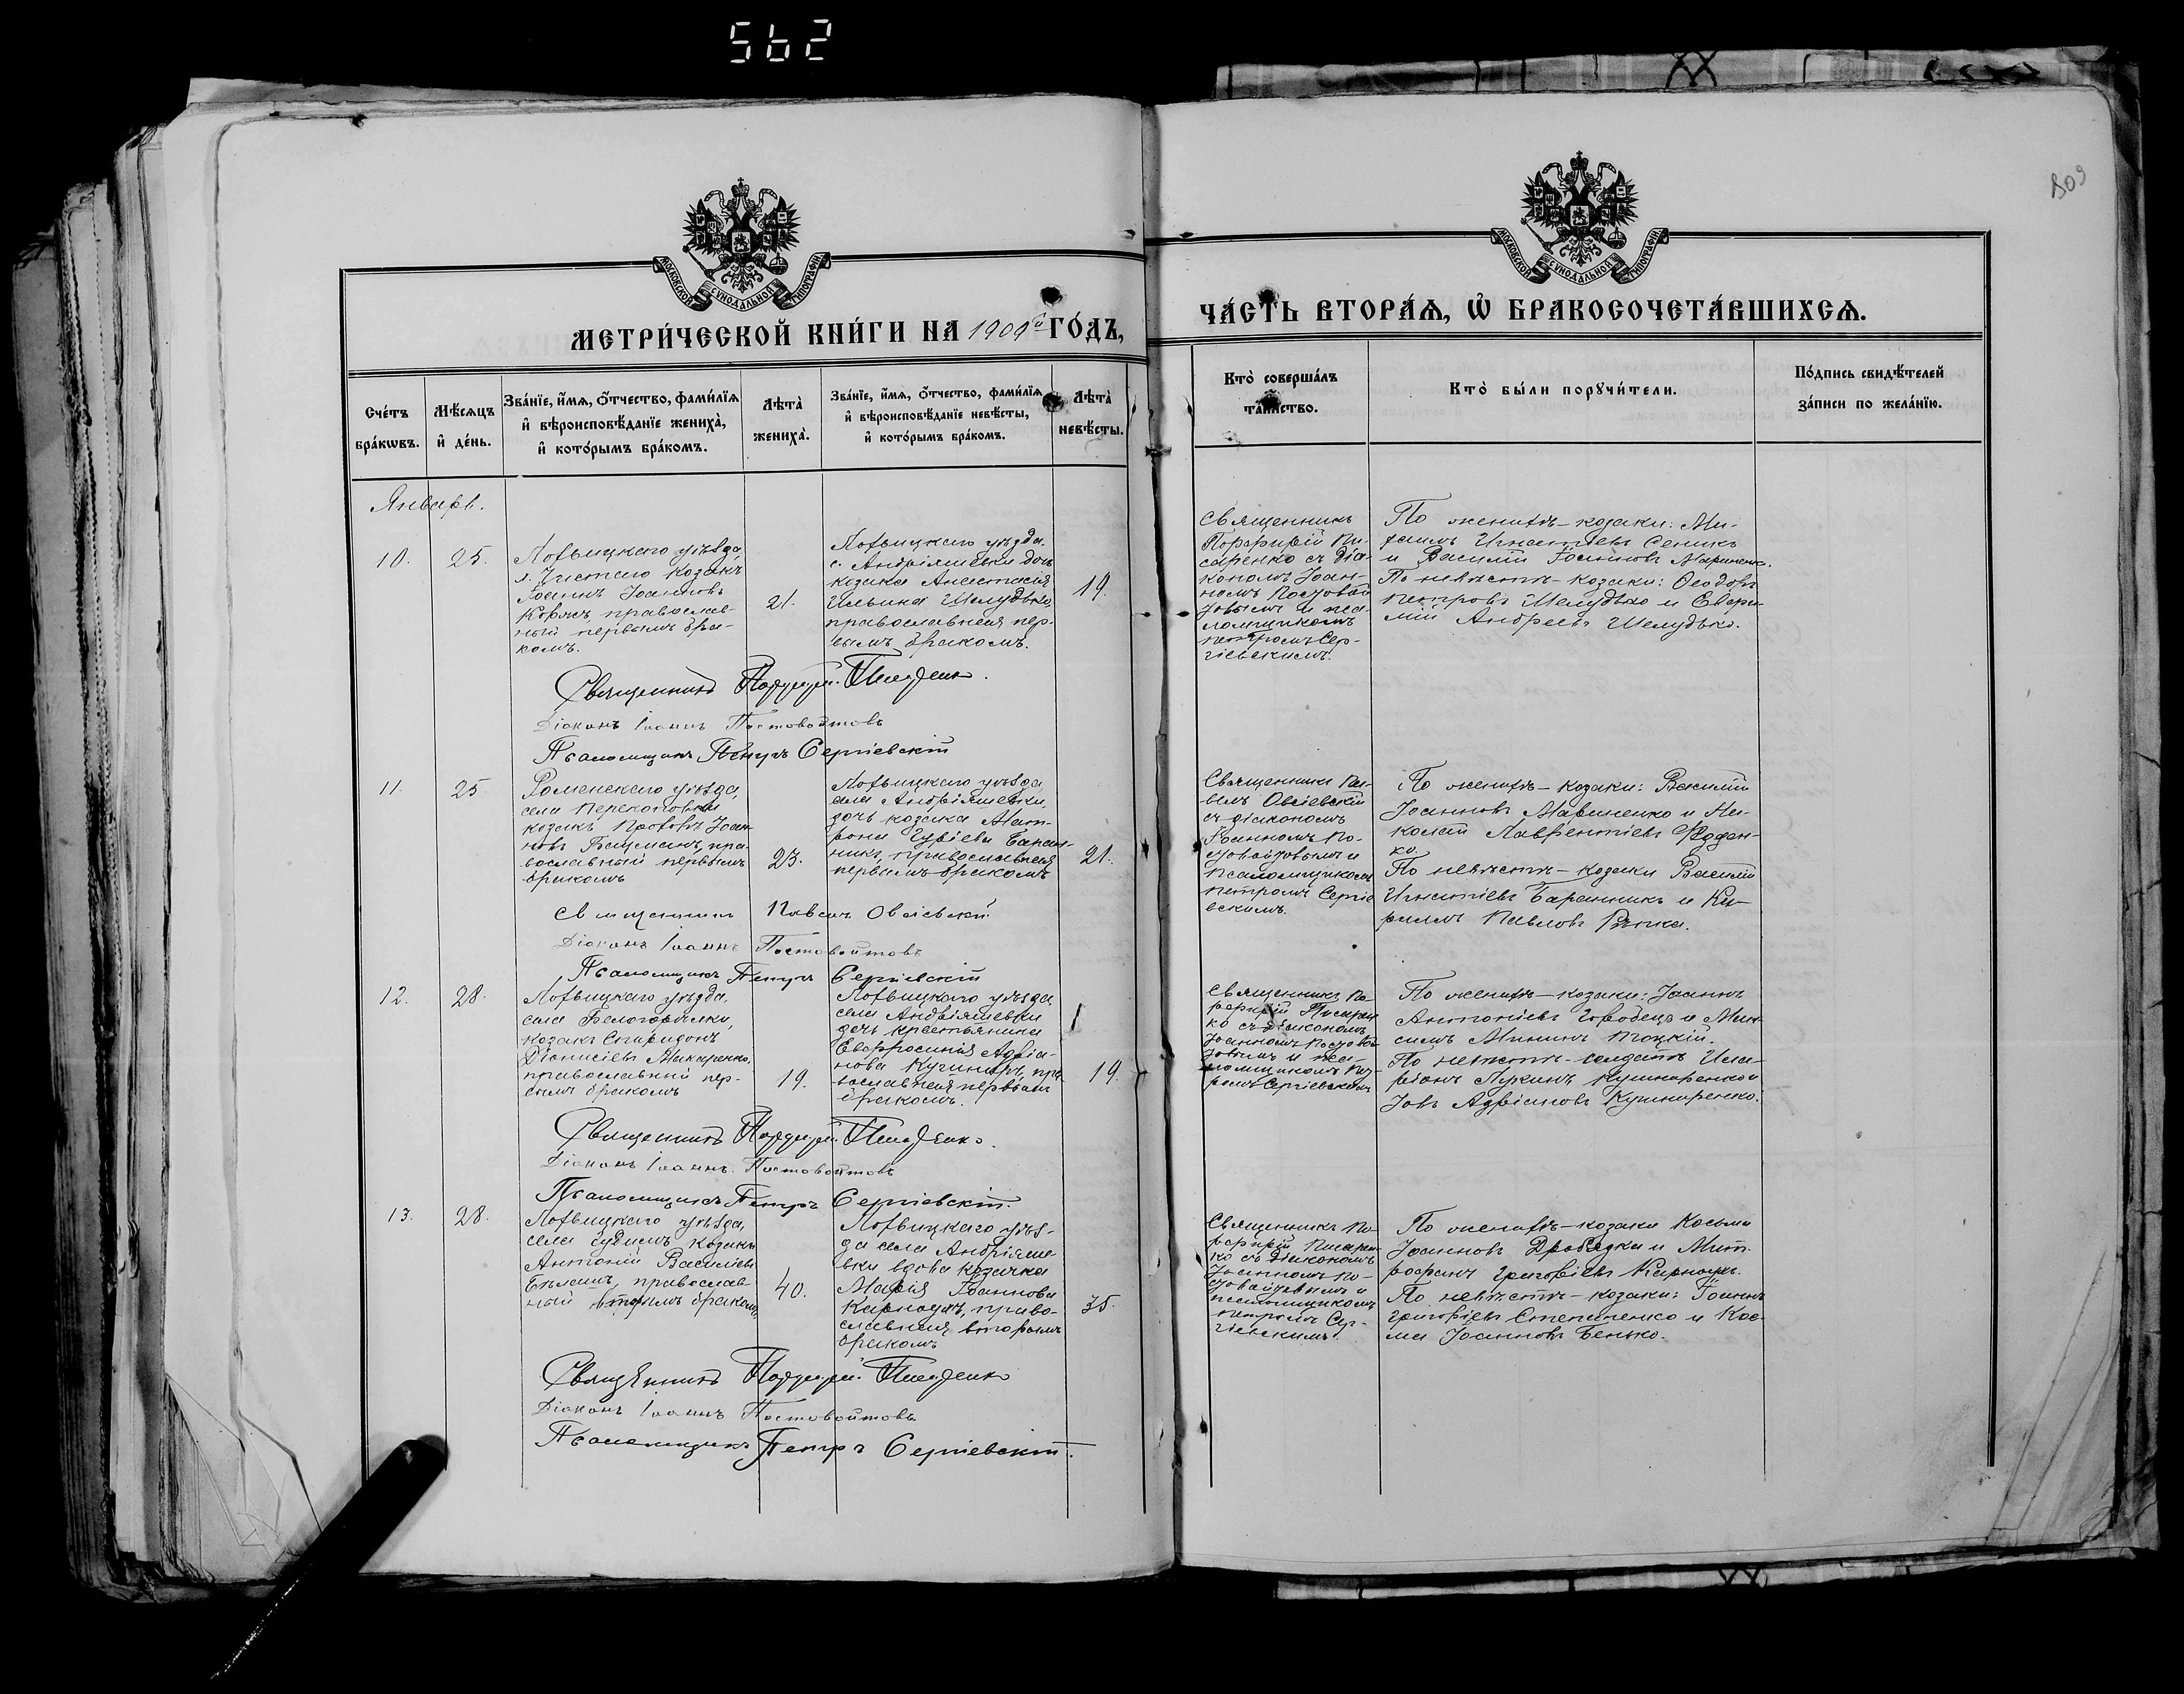 562
809
МОСКОВСКОЙ СѴНОДАЛЬНОЙ ТИПОГРАФІИ
МОСКОВСКОЙ СѴНОДАЛЬНОЙ ТИПОГРАФІИ
МЕТРИ́ЧЕСКОЙ КНИ́ГИ НА 1909й ГО́ДЪ,
ЧА́СТЬ ВТОРА́Ѧ, Ѽ БРАКОСОЧЕТА́ВШИХСѦ.
Сче́тъ
бра́кѡвъ.
Мѣ́сѧцъ
и҆ де́нь.
Зва́нїе, и҆́мѧ, ѻ҆́тчество, фами́лїѧ
и҆ вѣроисповѣ́данїе жениха̀,
и҆ кото́рымъ бра́комъ.
Лѣта̀
жениха̀.
Зва́нїе, и҆́мѧ, ѻ҆́тчество, фами́лїѧ
и҆ вѣроисповѣ́данїе невѣ́сты,
и҆ кото́рымъ бра́комъ.
Лѣта̀
невѣ́сты.
Кто̀ соверша́лъ
та́инство.
Кто̀ бы́ли порꙋчи́тели.
По́дпись свидѣ́телей
за́писи по жела́нїю.
Январь.
10.
25.
Лохвицкаго уѣзда,
с. Чистаго козакъ
Іоаннъ Іоанновъ
Коржъ, православ-
ный первымъ бра-
комъ.
21.
Лохвицкаго уѣзда
с. Андріяшевки дочь
козака Анастасія
Ильина Шелудько,
православная пер-
вымъ бракомъ.
19.
Священникъ
Порфирій Пи-
саренко съ діа-
кономъ Іоан-
номъ Постовой
товымъ и пса-
ломщикомъ
Петромъ Сер-
гіевскимъ.
По женихѣ – козаки: Ми-
хаилъ Игнатіевъ Сеникъ
и Василій Іоанновъ Мариненко.
По невѣстѣ – козаки: Ѳеодоръ
Петровъ Шелудько и Евфи-
мій Андреевъ Шелудько.
Священникъ Порфирій Писаренко.
Діаконъ Іоаннъ Постовойтовъ
Псаломщикъ Петръ Сергіевскій
11.
25
Роменскаго уѣзда,
села Перекоповки
козакъ Прохоръ Іоан-
новъ Вацманъ, пра-
вославный первымъ
бракомъ
23.
Лохвицкаго уѣзда
села Андріяшевки,
дочь козака Мат-
рона Гуріева Баран-
никъ, православная
первымъ бракомъ
21.
Священникъ Па-
велъ Овсіевскій
съ діакономъ
Іоанномъ По-
стовойтовымъ и
псаломщикомъ
Петромъ Сергіе
вскимъ.
По женихѣ – козаки: Василій
Іоанновъ Мариненко и Ни-
колай Лаврентіевъ Федден-
ко.
По невѣстѣ – козаки Василій
Игнатіевъ Баранникъ и Ки-
риллъ Павловъ Рѣпка.
Священникъ Павелъ Овсіевскій
Діаконъ Іоаннъ Постовойтовъ
Псаломщикъ Петръ Сергіевскій
12.
28.
Лохвицкаго уѣзда,
села Белогорилки,
козакъ Спиридонъ
Діонисіевъ Макаренко,
православный пер-
вымъ бракомъ
19.
Лохвицкаго уѣзда
села Андріяшевки
дочь крестьянина
Евфросинія Адріа-
нова Кушниръ, пра-
вославная первымъ
бракомъ.
19.
Священникъ По-
рфирій Писарен
ко съ діакономъ
Іоанномъ Постовой
товымъ и пса-
ломщикомъ Пе-
тромъ Сергіевскимъ
По женихѣ – козаки: Іоаннъ
Антоніевъ Городецъ и Мак-
симъ Мининъ Тоцкій.
По невѣстѣ – солдатъ Ила-
ріонъ Лукинъ Кушнаренко и
Іовъ Адріановъ Кушнаренко.
Священникъ Порфирій Писаренко.
Діаконъ Іоаннъ Постовойтовъ
Псаломщикъ Петръ Сергіевскій.
13.
28.
Лохвицкаго уѣзда,
села Гудимъ козакъ
Антоній Василіевъ
Бѣлашъ, православ-
ный вторымъ бракомъ,
40.
Лохвицкаго уѣз-
да села Андріяше-
вки вдова козачка
Марія Іоаннова
Карнаухъ, право-
славная, вторымъ
бракомъ
35.
Священникъ По-
рфирій Писарен
ко съ діакономъ
Іоанномъ По-
стовойтовымъ и
псаломщикомъ
Петромъ Сер-
гіевскимъ.
По женихѣ – козаки Косьма
Іоанновъ Дробязка и Мит-
рофанъ Григоріевъ Карнаухъ.
По невѣстѣ – козаки: Іоаннъ
Григоріевъ Степаненко и Кос-
ма Іоанновъ Бенько.
Священникъ Порфирій Писаренко
Діаконъ Іоаннъ Постовойтовъ
Псаломщикъ Петръ Сергіевскій.